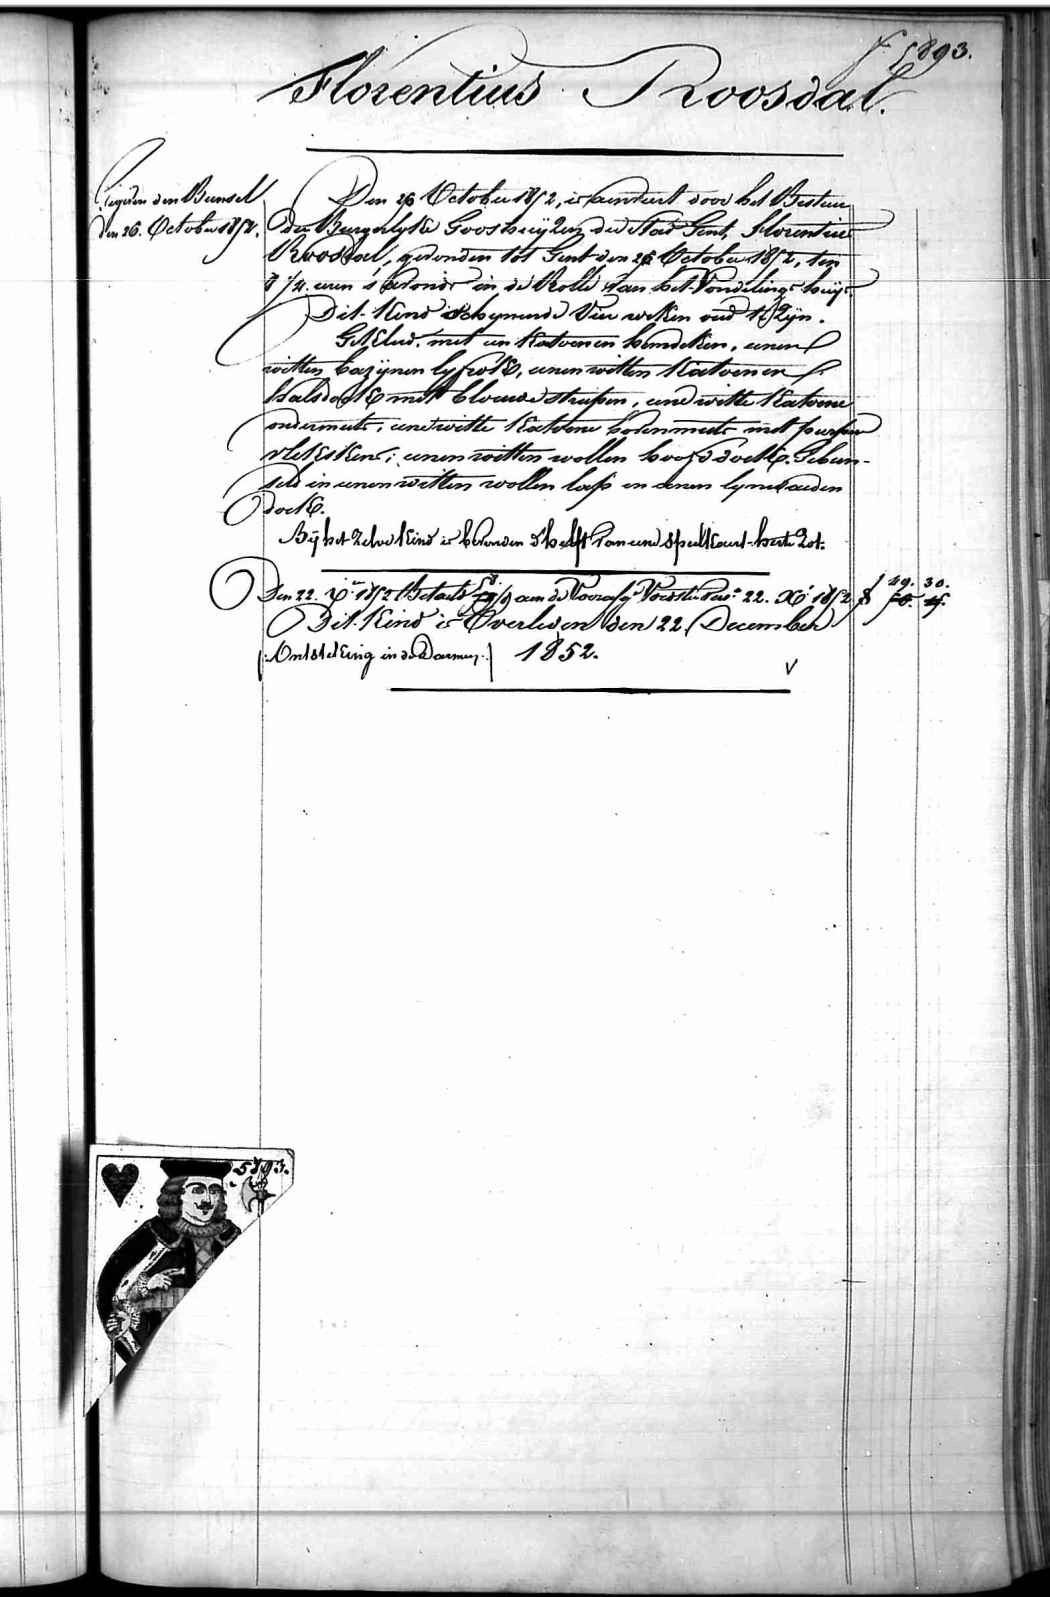 f. 5893.
Florentius Roosdal.
den Bunsel
den 26. October 1852.
Den 26 October 1852, is aenveert door het Bestuer
der Burgerlyke Godshuyzen der Stad Gent, Florentius
Roosdal, gevonden tot Gent den 26 October 1852, ten
8 1/4. uren s'avonds in de Rolle van het Vondelings huys.
Dit Kind schynende Vier weken oud te Zyn.
Gekleed. met een Katoenen hemdeken, eenen
witten bazynen lyfrok, eenen witten Katoenen
halsdoek met blauwe strepen, eene witte Katoene
ondermuts, eene witte Katoene bovenmuts met purper
vlekskens; eenen witten wollen hoofddoek. Gebun-
seld in eenen witten wollen laps en eenen lynwaeden
doek.
Bij het Zelve Kind is bevonden d'helft van eene Speelkaart-herte Zot.
Den 22. Xr 1852 Betaeld aen de Voorz. Voedster 22. Xr 1852 f 29. 30.
Dit Kind is Overleden den 22 December
(:Ontsteking in de Darmen:) 1852.
V
5893.